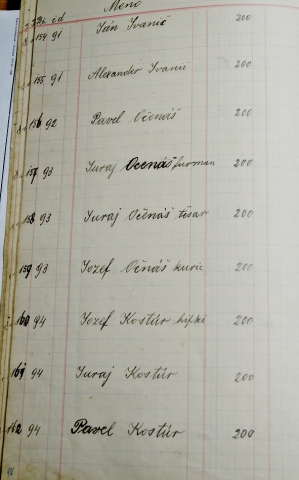 Meno
154 91 Ján Ivanič 200
155 91 Alexander Ivanič 200
156 92 Pavel Očenáš 200
157 93 Juraj Očenáš furman 200
158 93 Juraj Očenáš tesar 200
159 93 Jozef Očnáš 200
160 94 Jozef Kostúr 200
161 94 Juraj Kostúr 200
162 94 Pavel Kostúr 200